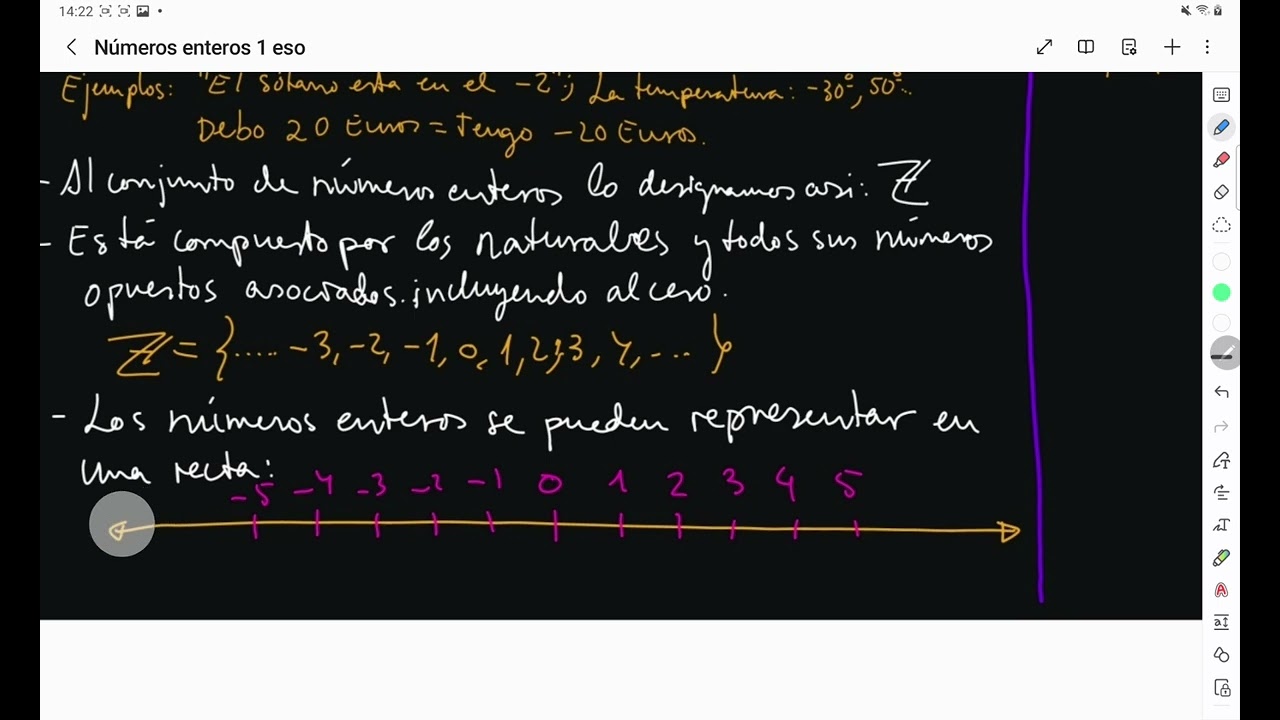 14:22
Números enteros 1 eso
Ejemplos: "El sótano esta en el -2"; La temperatura: -30º, 50º..
Debo 20 Euros = Tengo -20 Euros.
- Al conjunto de números enteros lo designamos asi: ℤ
- Está compuesto por los naturales y todos sus números
opuestos asociados. incluyendo al cero.
ℤ = {..... -3, -2, -1, 0, 1, 2, 3, 4, ... }
- Los números enteros se pueden representar en
una recta:
-5 -4 -3 -2 -1 0 1 2 3 4 5